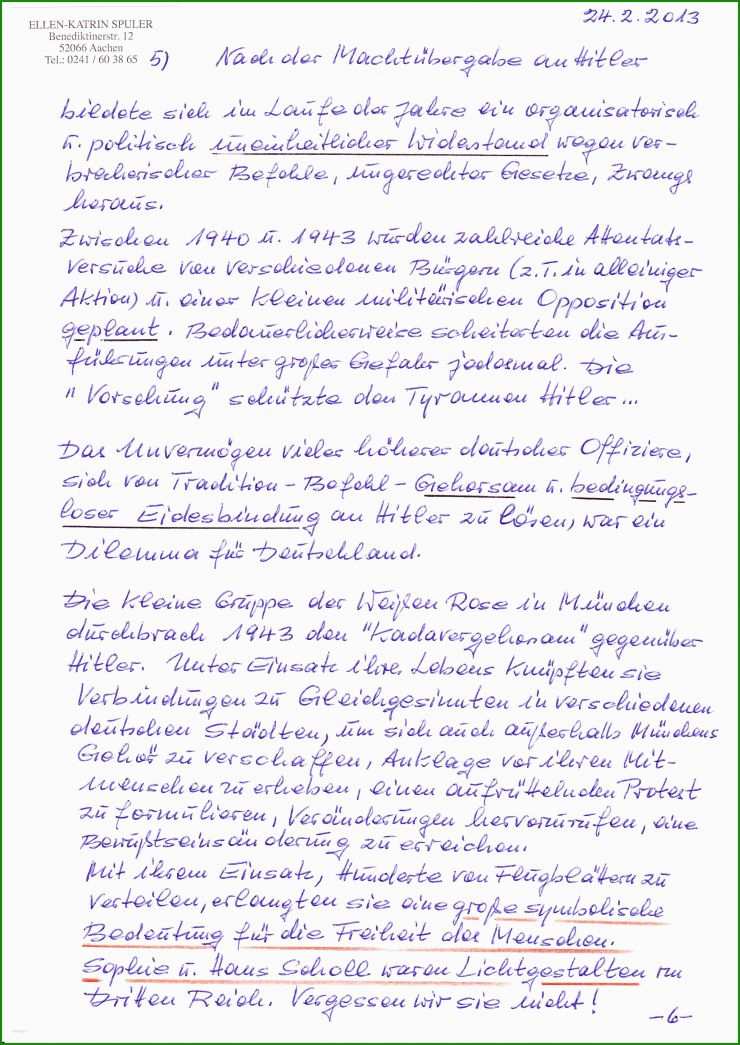 24.2.2013
ELLEN-KATRIN SPULER
Benediktinerstr. 12
52066 Aachen
Tel.: 0241 / 60 38 65
5) Nach der Machtübergabe an Hitler
bildete sich im Laufe der Jahre ein organisatorisch
u. politisch uneinheitlicher Widestand wegen ver-
brecherischer Befehle, ungerechter Gesetze, Zwangs
heraus.
Zwischen 1940 u. 1943 wurden zahlreiche Attentats-
versuche von verschiedenen Bürgern (z.T. in alleiniger
Aktion) u. einer kleinen militärischen Opposition
geplant. Bedauerlicherweise scheiterten die Aus-
führungen unter großer Gefahr jedesmal. Die
"Vorsehung" schützte den Tyrannen Hitler...
Das Unvermögen vieler höherer deutscher Offiziere,
sich von Tradition - Befehl - Gehorsam u. bedingungs-
loser Eidesbindung an Hitler zu lösen, war ein
Dilemma für Deutschland.
Die kleine Gruppe der Weißen Rose in München
durchbrach 1943 den "Kadavergehorsam" gegenüber
Hitler. Unter Einsatz ihres Lebens knüpften sie
Verbindungen zu Gleichgesinnten in verschiedenen
deutschen Städten, um sich auch außerhalb Münchens
Gehör zu verschaffen, Anklage vor ihren Mit-
menschen zu erheben, einen aufrüttelnden Protest
zu formulieren, Veränderungen hervorzurufen, eine
Bewußtseinsänderung zu erreichen.
Mit ihrem Einsatz, Hunderte von Flugblättern zu
verteilen, erlangten sie eine große symbolische
Bedeutung für die Freiheit des Menschen.
Sophie u. Hans Scholl waren Lichtgestalten im
Dritten Reich. Vergessen wir sie nicht!
-6-